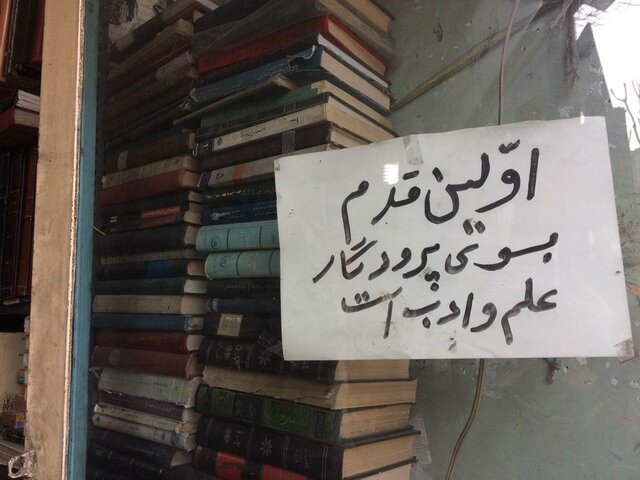 اوّلین قدم
بسوی پرودگار
علم و ادب است